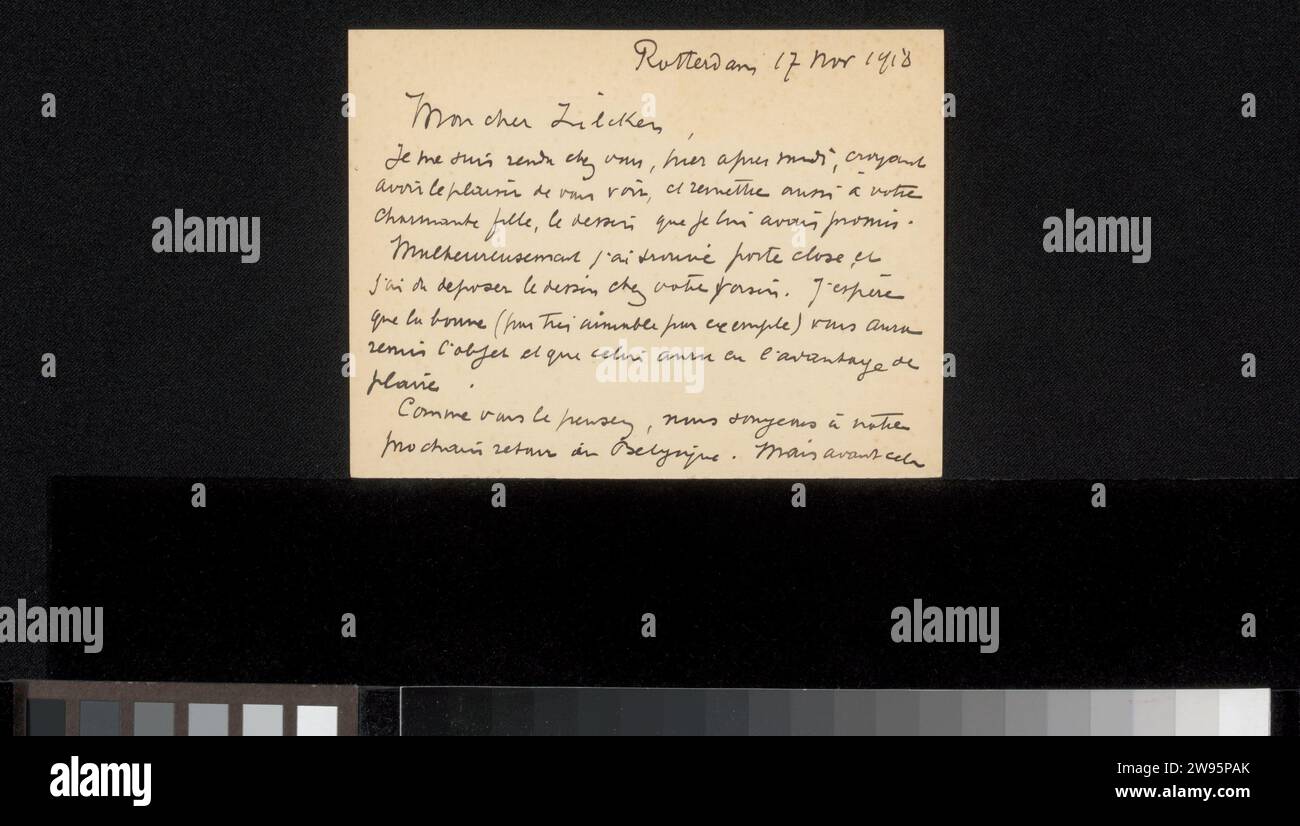 Rotterdam 17 Nov 1918
Mon cher Zilcken,
Je me suis rendu chez vous, hier apres midi, croyant
avoir le plaisir de vous voir, et remettre aussi à votre
charmante fille, le dessin que je lui avais promis.
Malheureusement j'ai trouvé porte close, et
j'ai du deposer le dessin chez votre voisin. J'espère
que la bonne (pas très aimable par exemple) vous aura
remis l'objet et que celui aura eu l'avantage de
plaire.
Comme vous le pensez, nous songeons à notre
prochain retour en Belgique. Mais avant cela
alamy
alamy
alamy
alamy
alamy
alamy
Image ID: 2W95PAK
www.alamy.com